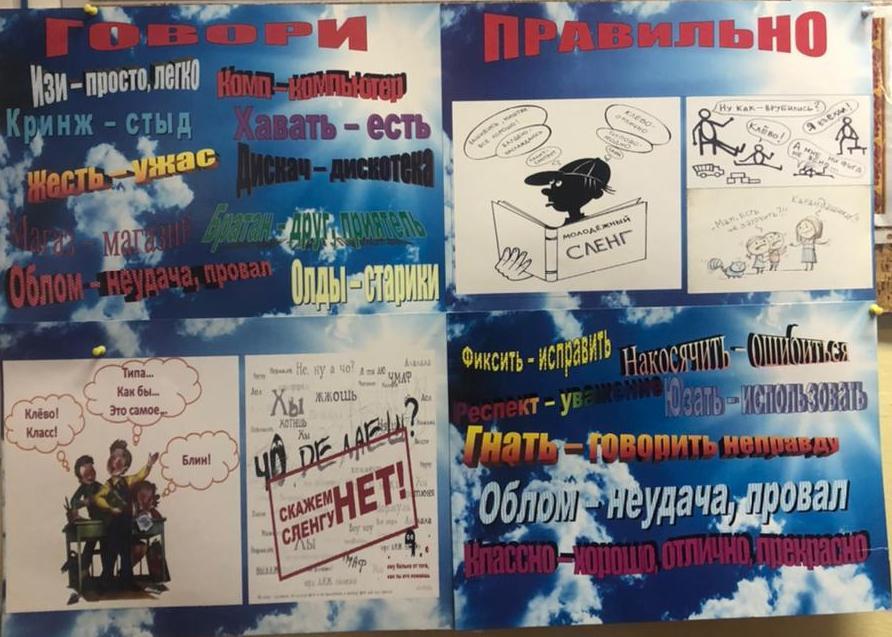 ГОВОРИ
ПРАВИЛЬНО
Изи – просто, легко
Комп – компьютер
Кринж – стыд
Хавать – есть
Жесть – ужас
Дискач – дискотека
Магаз – магазин
Братан – друг, приятель
Облом – неудача, провал
Олды – старики
МОЛОДЁЖНЫЙ
СЛЕНГ
КЛЁВО-
ОТЛИЧНО
НУ КАК – ВРУБИЛИСЬ?
КЛЁВО!
Я ВЪЕХАЛ!
А МНЕ НИ ФИГА
Мам, есть
Карандашики?
Клёво!
Класс!
Типа...
Как бы...
Это самое...
Блин!
Не, ну а чо?
Хы
жжошь
УМАФ
ЧО, ДЕЛАЕШ?
СКАЖЕМ
СЛЕНГУ
НЕТ!
Фиксить – исправить
Накосячить – ошибиться
Респект – уважение
Юзать – использовать
Гнать – говорить неправду
Облом – неудача, провал
Классно – хорошо, отлично, прекрасно